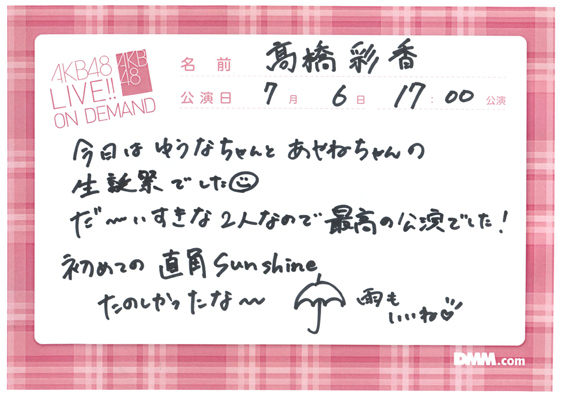 AKB48
LIVE!!
ON DEMAND
AKB
48
名前 髙橋彩香
公演日 7月 6日 17:00 公演
今日は ゆうなちゃんと あやねちゃんの
生誕祭でした
だ〜いすきな2人なので最高の公演でした!
初めての 直角Sunshine
たのしかったな〜
雨も
いいね♡
DMM.com